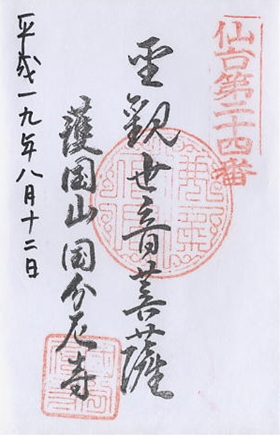 仙台第二十四番
聖観世音菩薩
護国山国分尼寺
平成一九年八月十二日